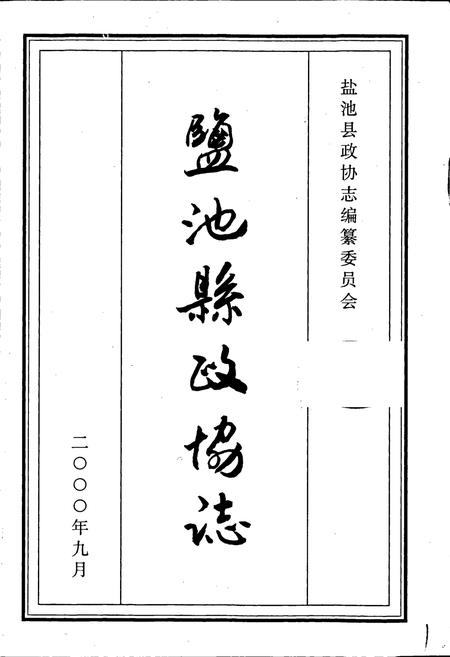 盐池县政协志编纂委员会
鹽池縣政協誌
二〇〇〇年九月